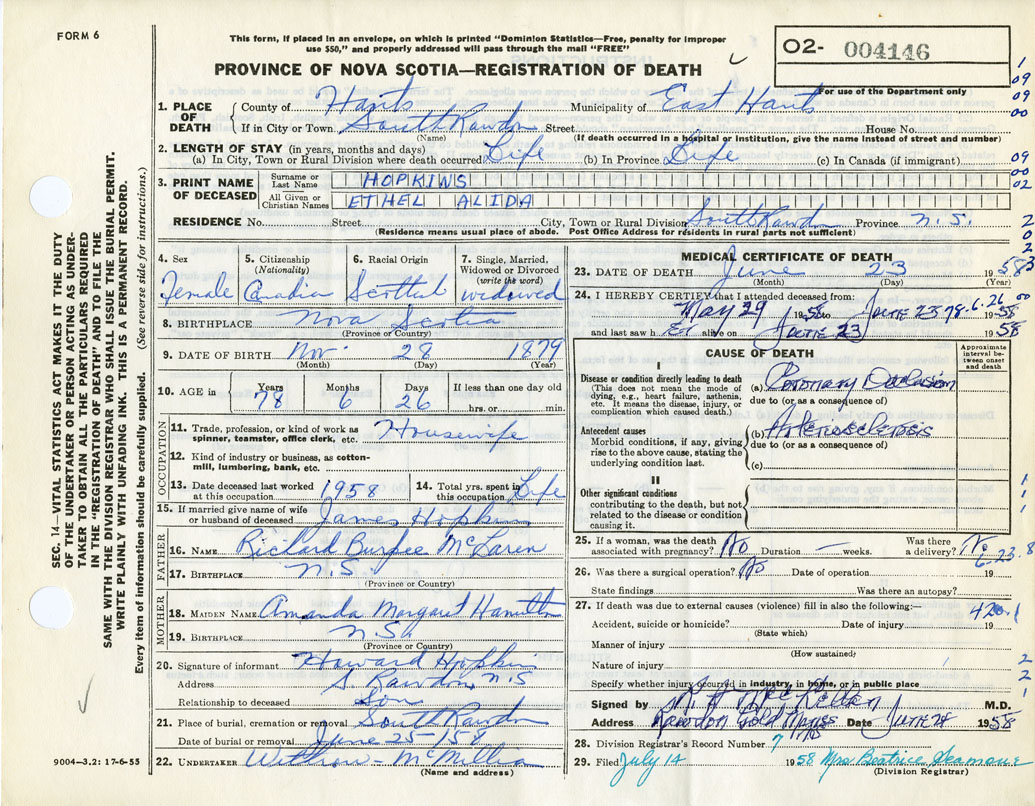 FORM 6
This form, if placed in an envelope, on which is printed "Dominion Statistics—Free, penalty for improper
use $50," and properly addressed will pass through the mail "FREE"
O2- 004146
For use of the Department only
PROVINCE OF NOVA SCOTIA—REGISTRATION OF DEATH
1. PLACE OF DEATH
County of Hants Municipality of East Hants
If in City or Town South Rawdon Street House No.
(Name) (If death occurred in a hospital or institution, give the name instead of street and number)
2. LENGTH OF STAY (in years, months and days)
(a) In City, Town or Rural Division where death occurred Life (b) In Province Life (c) In Canada (if immigrant)
3. PRINT NAME OF DECEASED
Surname or Last Name HOPKINS
All Given or Christian Names ETHEL ALIDA
RESIDENCE No. Street City, Town or Rural Division South Rawdon Province N.S.
(Residence means usual place of abode. Post Office Address for residents in rural parts not sufficient)
4. Sex Female
5. Citizenship (Nationality) Canadian
6. Racial Origin Scottish
7. Single, Married, Widowed or Divorced (write the word) widowed
8. BIRTHPLACE Nova Scotia
(Province or Country)
9. DATE OF BIRTH Nov. 28 1879
(Month) (Day) (Year)
10. AGE in Years 78 Months 6 Days 26 If less than one day old hrs. or min.
OCCUPATION
11. Trade, profession, or kind of work as spinner, teamster, office clerk, etc. Housewife
12. Kind of industry or business, as cotton-mill, lumbering, bank, etc.
13. Date deceased last worked at this occupation 1958
14. Total yrs. spent in this occupation Life
15. If married give name of wife or husband of deceased James Hopkins
FATHER
16. NAME Richard Burpee McLaren
17. BIRTHPLACE N.S.
(Province or Country)
MOTHER
18. MAIDEN NAME Amanda Margaret Hamilton
19. BIRTHPLACE N.S.
(Province or Country)
20. Signature of informant Howard Hopkins
Address S. Rawdon, N.S
Relationship to deceased Son
21. Place of burial, cremation or removal South Rawdon
Date of burial or removal June 25-1958
22. UNDERTAKER Withrow - McMillan
(Name and address)
MEDICAL CERTIFICATE OF DEATH
23. DATE OF DEATH June 23 1958
(Month) (Day) (Year)
24. I HEREBY CERTIFY that I attended deceased from:
May 29 1958 to June 23 1958
78-6-26
and last saw her alive on June 23 1958
CAUSE OF DEATH
Approximate interval between onset and death
I
Disease or condition directly leading to death
(This does not mean the mode of dying, e.g., heart failure, asthenia, etc. It means the disease, injury, or complication which caused death.)
(a) Coronary Occlusion
due to (or as a consequence of)
Antecedent causes
Morbid conditions, if any, giving rise to the above cause, stating the underlying condition last.
(b) Arteriosclerosis
due to (or as a consequence of)
(c)
II
Other significant conditions
contributing to the death, but not related to the disease or condition causing it.
25. If a woman, was the death associated with pregnancy? No Duration — weeks. Was there a delivery? No
6.23.8
26. Was there a surgical operation? No Date of operation 19
State findings Was there an autopsy?
27. If death was due to external causes (violence) fill in also the following:—
420.1
Accident, suicide or homicide? Date of injury 19
(State which)
Manner of injury
(How sustained)
Nature of injury
Specify whether injury occurred in industry, in home, or in public place
Signed by M.D.
Address Rawdon Gold Mines NS Date June 24 1958
28. Division Registrar's Record Number 7
29. Filed July 14 1958 Mrs Beatrice Seamone
(Division Registrar)
SEC. 14—VITAL STATISTICS ACT MAKES IT THE DUTY
OF THE UNDERTAKER OR PERSON ACTING AS UNDER-
TAKER TO OBTAIN ALL THE PARTICULARS REQUIRED
IN THE "REGISTRATION OF DEATH" AND TO FILE THE
SAME WITH THE DIVISION REGISTRAR WHO SHALL ISSUE THE BURIAL PERMIT.
WRITE PLAINLY WITH UNFADING INK. THIS IS A PERMANENT RECORD.
Every item of information should be carefully supplied. (See reverse side for instructions.)
9004—3.2: 17-6-55
1
09
09
00
09
00
02
2
0
2
3
00
1
1
1
2
2
1